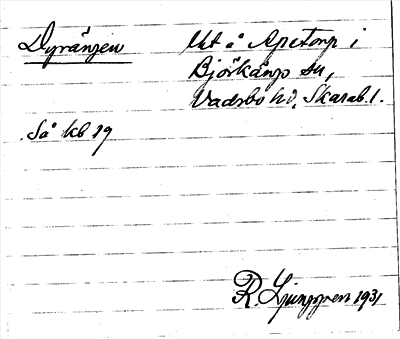 Dyrängen
Ägt å Apetorp i
Björkäng sn,
Vadsbo hd, Skarab. l.
Så kb 19
R. Ljunggren 1931